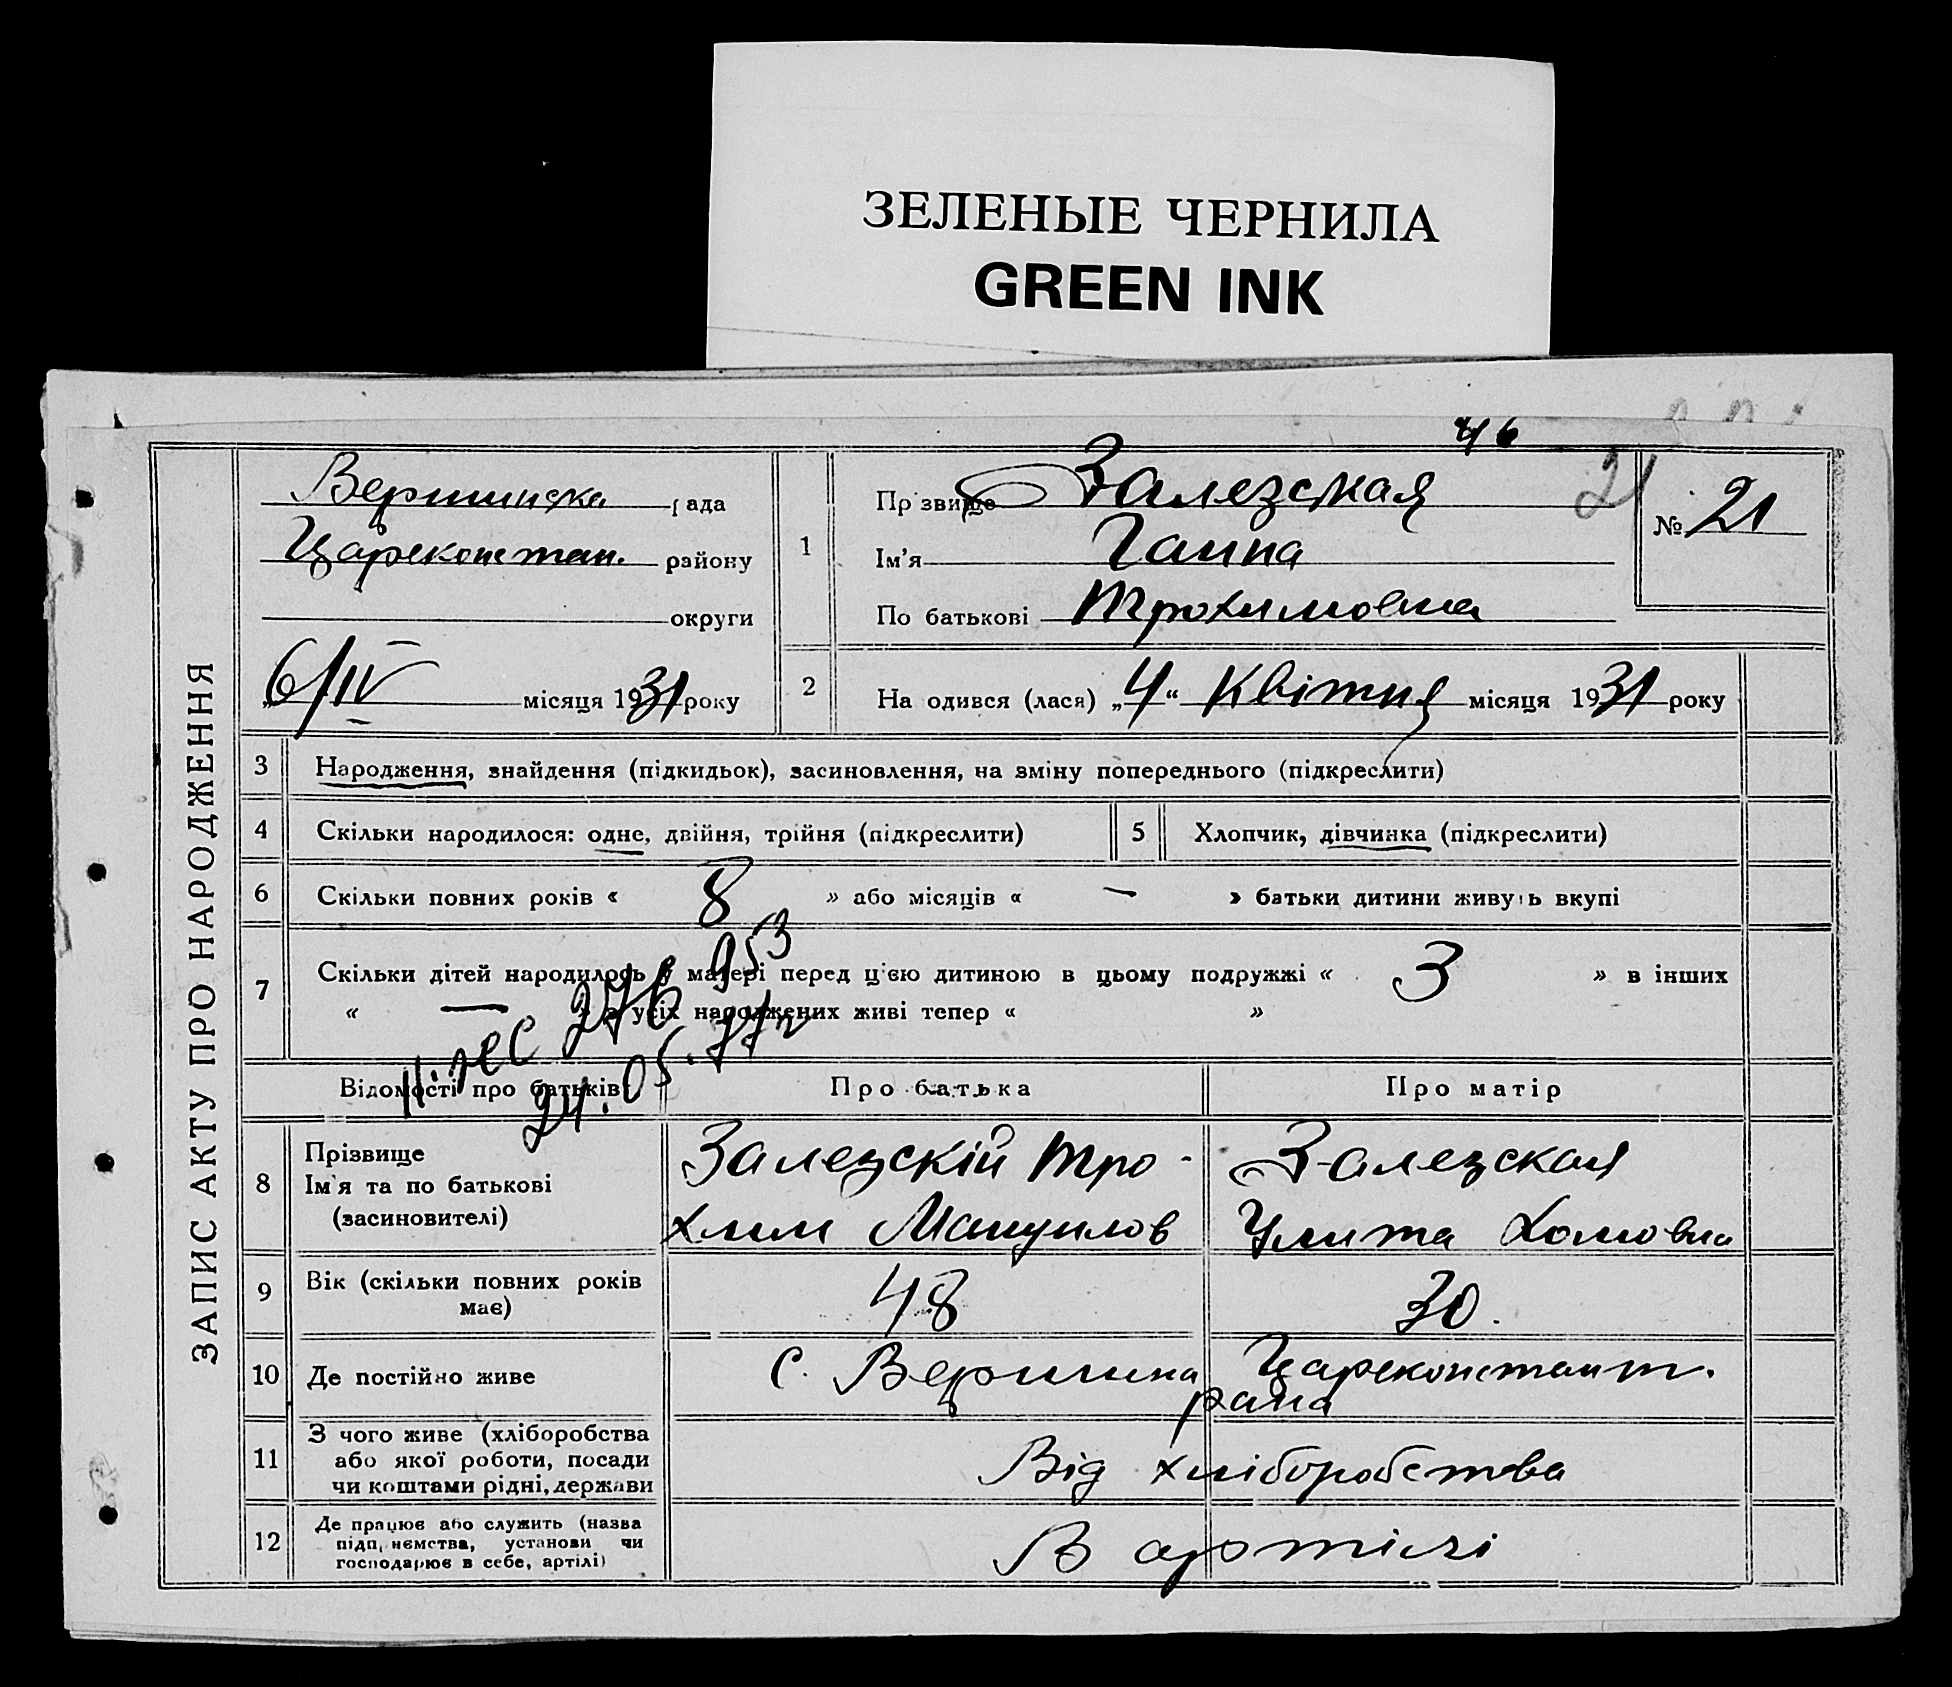 ЗЕЛЕНЫЕ ЧЕРНИЛА
GREEN INK
46
21
ЗАПИС АКТУ ПРО НАРОДЖЕННЯ
Вершинска рада
Цареконстан. району
округи
„6/IV місяця 1931 року
1
Прізвище Залезская
Ім'я Ганна
По батькові Трохимовна
№ 21
2 Народився (лася) „4“ Квітня місяця 1931 року
3 Народження, знайдення (підкидьок), засиновлення, на зміну попереднього (підкреслити)
4 Скільки народилося: одне, двійня, трійня (підкреслити)
5 Хлопчик, дівчинка (підкреслити)
6 Скільки повних років « 8 » або місяців « — » батьки дитини живуть вкупі
7 Скільки дітей народилось у матері перед цією дитиною в цьому подружжі « 3 » в інших
« — » з усіх народжених живі тепер « »
276 953
24.05.77г
Відомості про батьків
Про батька
Про матір
8 Прізвище
Ім'я та по батькові
(засиновителі)
Залезскій Тро-
хим Мануилов
Залезская
Улита Хомовна
9 Вік (скільки повних років
має)
48
30.
10 Де постійно живе
с. Вершина Цареконстант.
рана
11 З чого живе (хліборобства
або якої роботи, посади
чи коштами рідні, держави
Від хліборобства
12 Де працює або служить (назва
підприємства, установи чи
господарює в себе, артілі)
В артілі